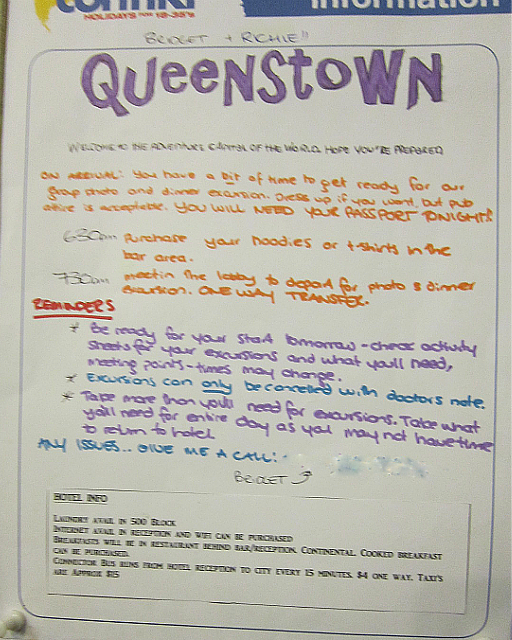 contiki
HOLIDAYS for 18-35's
information
BRIDGET + RICHIE!!
QUEENSTOWN
WELCOME TO THE ADVENTURE CAPITAL OF THE WORLD. HOPE YOU'RE PREPARED
ON ARRIVAL: You have a bit of time to get ready for our
group photo and dinner excursion. Dress up if you want, but pub
attire is acceptable. YOU WILL NEED YOUR PASSPORT TONIGHT!!
630pm Purchase your hoodies or t-shirts in the
bar area.
730pm meet in the lobby to depart for photo & dinner
excursion. ONE WAY TRANSFER.
REMINDERS
* Be ready for your start tomorrow - check activity
sheets for your excursions and what you'll need,
meeting points - times may change.
* Excursions can only be cancelled with doctors note.
* Take more than you'll need for excursions. Take what
you'll need for entire day as you may not have time
to return to hotel.
ANY ISSUES.. GIVE ME A CALL:-
BRIDGET
HOTEL INFO
LAUNDRY AVAIL IN 500 BLOCK
INTERNET AVAIL IN RECEPTION AND WIFI CAN BE PURCHASED
BREAKFASTS WILL BE IN RESTAURANT BEHIND BAR/RECEPTION. CONTINENTAL. COOKED BREAKFAST
CAN BE PURCHASED.
CONNECTOR BUS RUNS FROM HOTEL RECEPTION TO CITY EVERY 15 MINUTES. $4 ONE WAY. TAXI'S
ARE APPROX $15